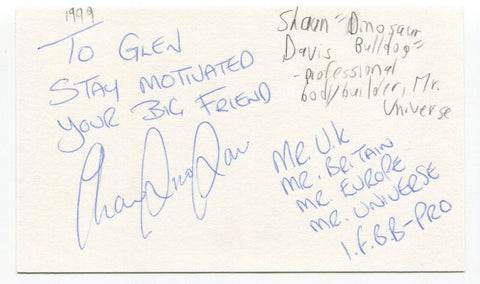 1999
TO GLEN
STAY MOTIVATED
YOUR BIG FRIEND
Shaun "Dinosaur
Davis Bulldog"
- professional
bodybuilder, Mr.
Universe
MR. U.K
MR. BRITAIN
MR. EUROPE
MR. UNIVERSE
I.F.B.B-PRO